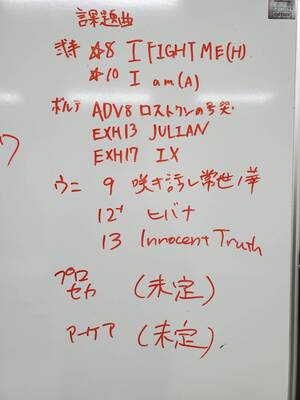 課題曲
弐寺 ☆8 I FIGHT ME(H)
☆10 I am(A)
ボルテ ADV8 ロストワンの号哭
EXH13 JULIAN
EXH17 IX
ウニ 9 咲き誇れ常世ノ華
12+ ヒバナ
13 Innocent Truth
プロセカ (未定)
アーケア (未定).